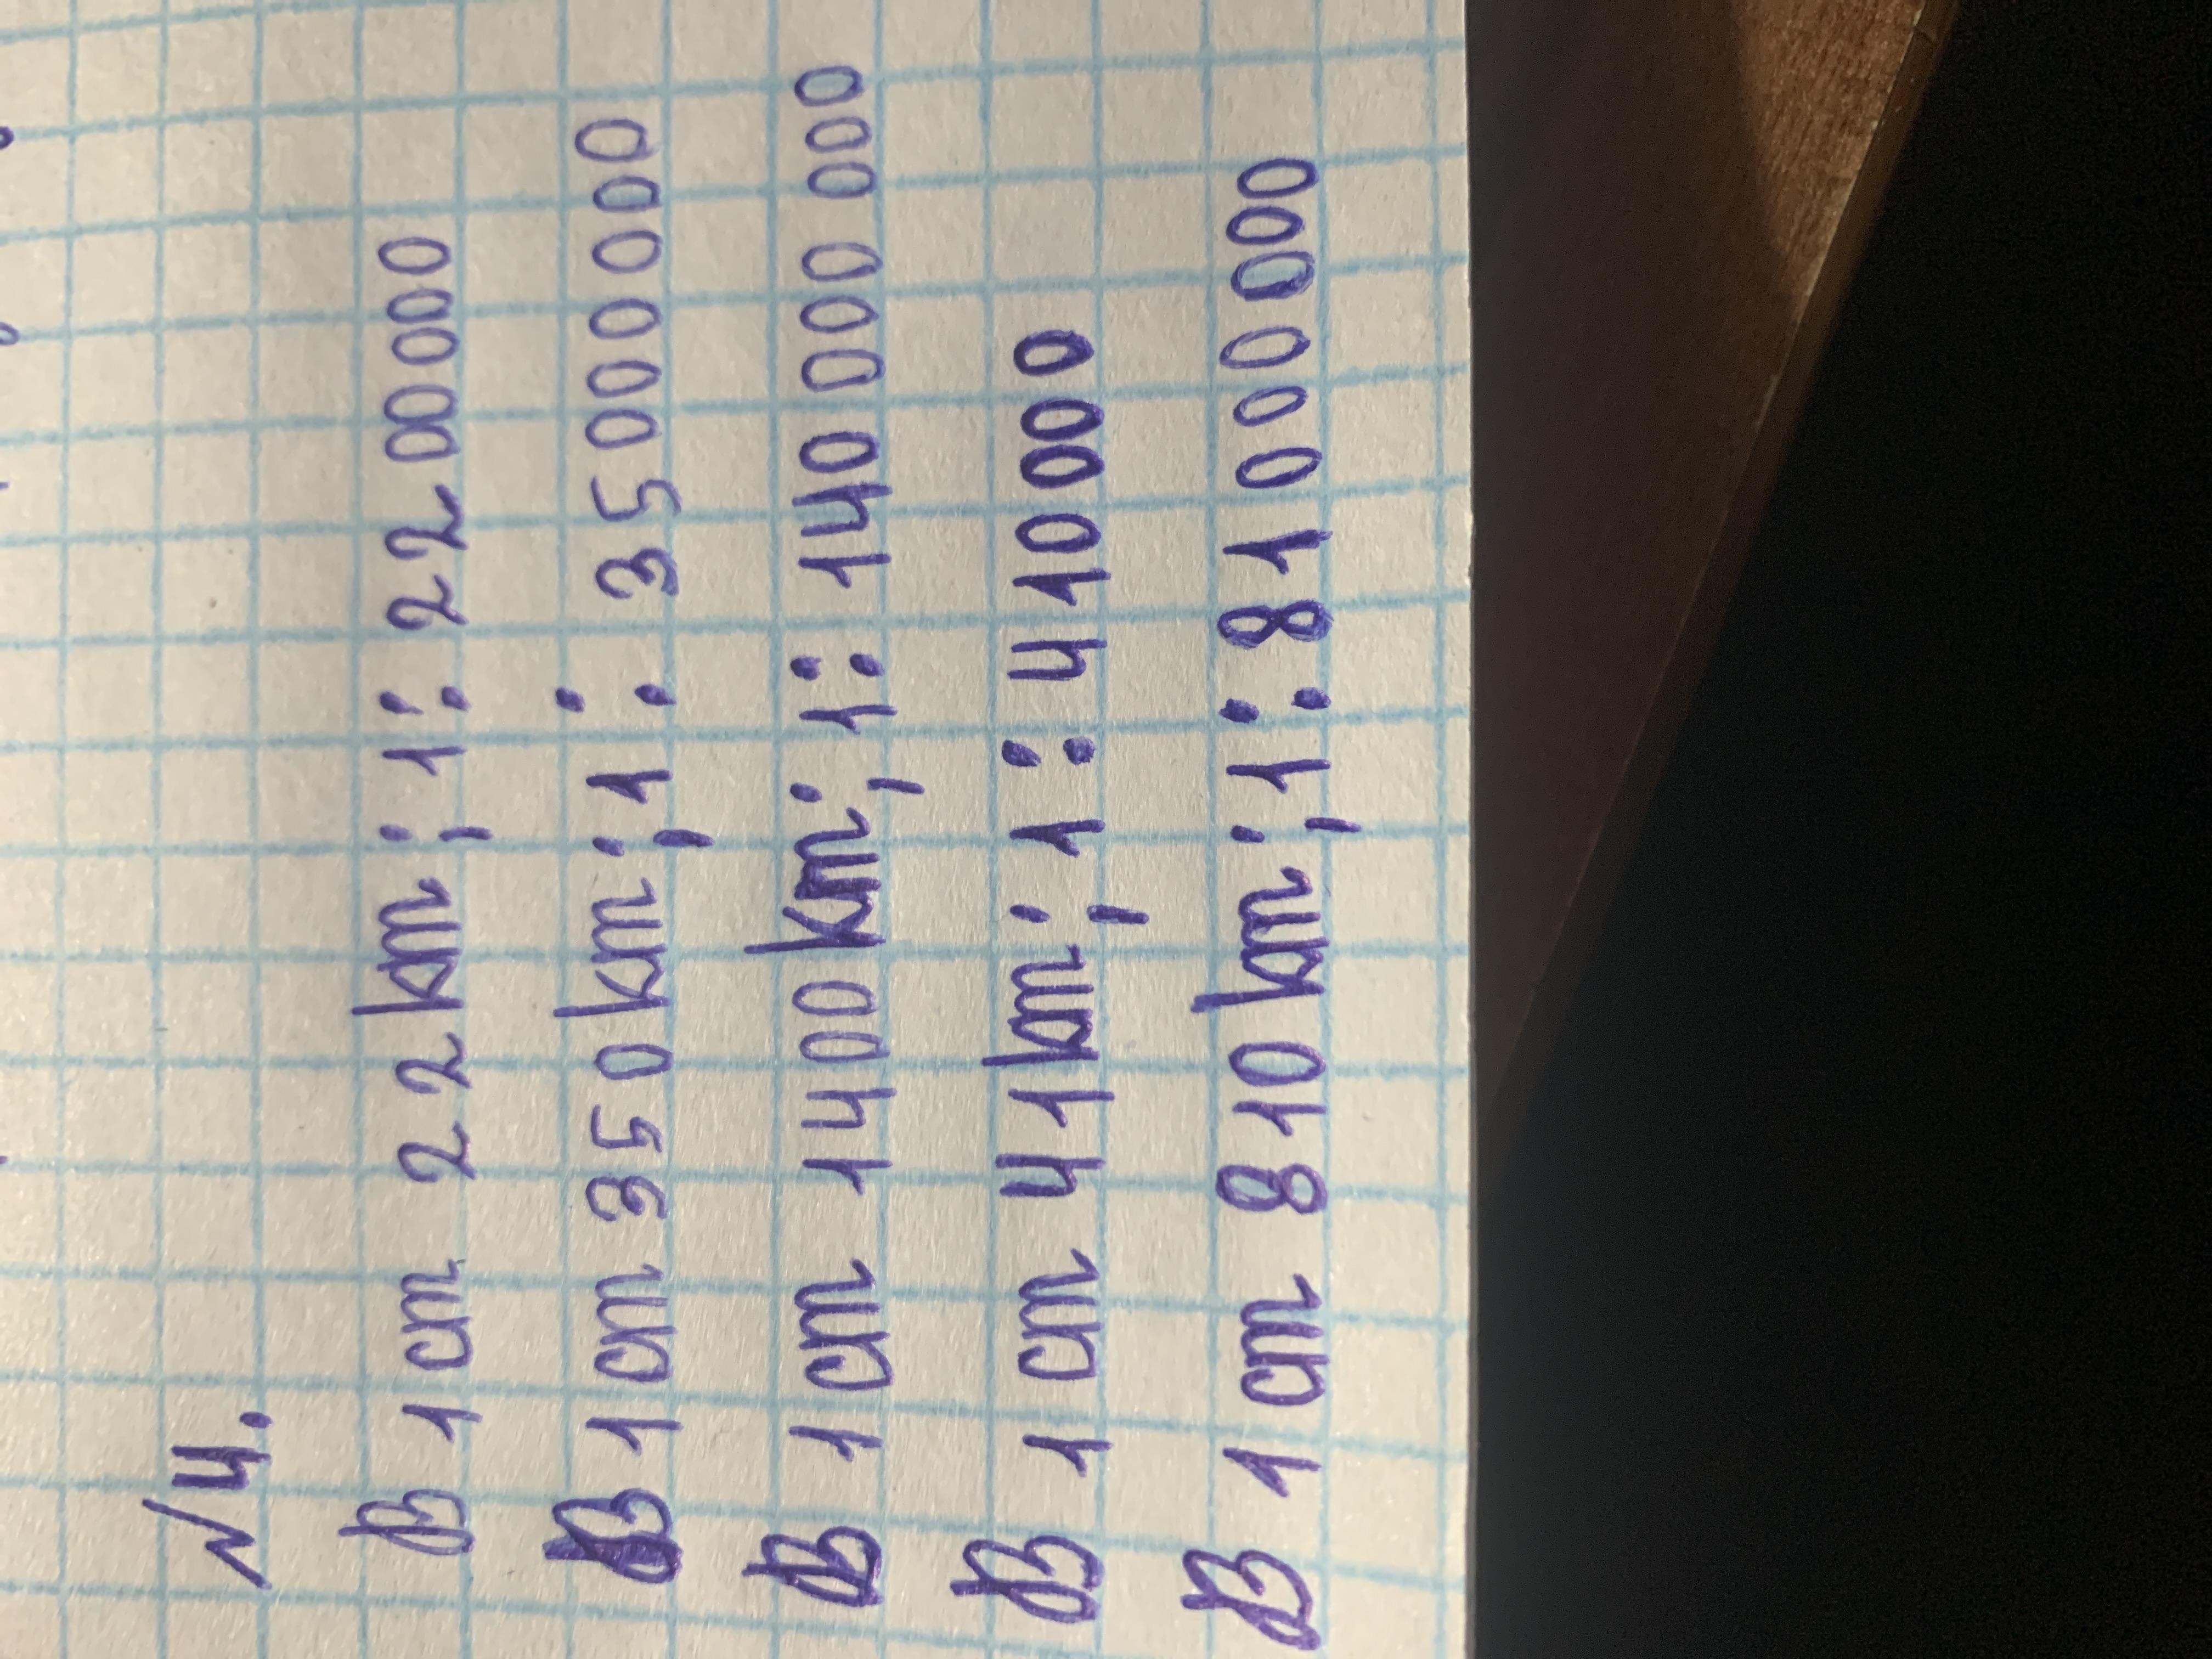 №4.
В 1 cm 22 km; 1: 22 00 000
В 1 cm 350 km; 1: 35 000 000
В 1 cm 1400 km; 1: 140 000 000
В 1 cm 41 km; 1: 4 10 000
В 1 cm 810 km; 1: 81 000 000